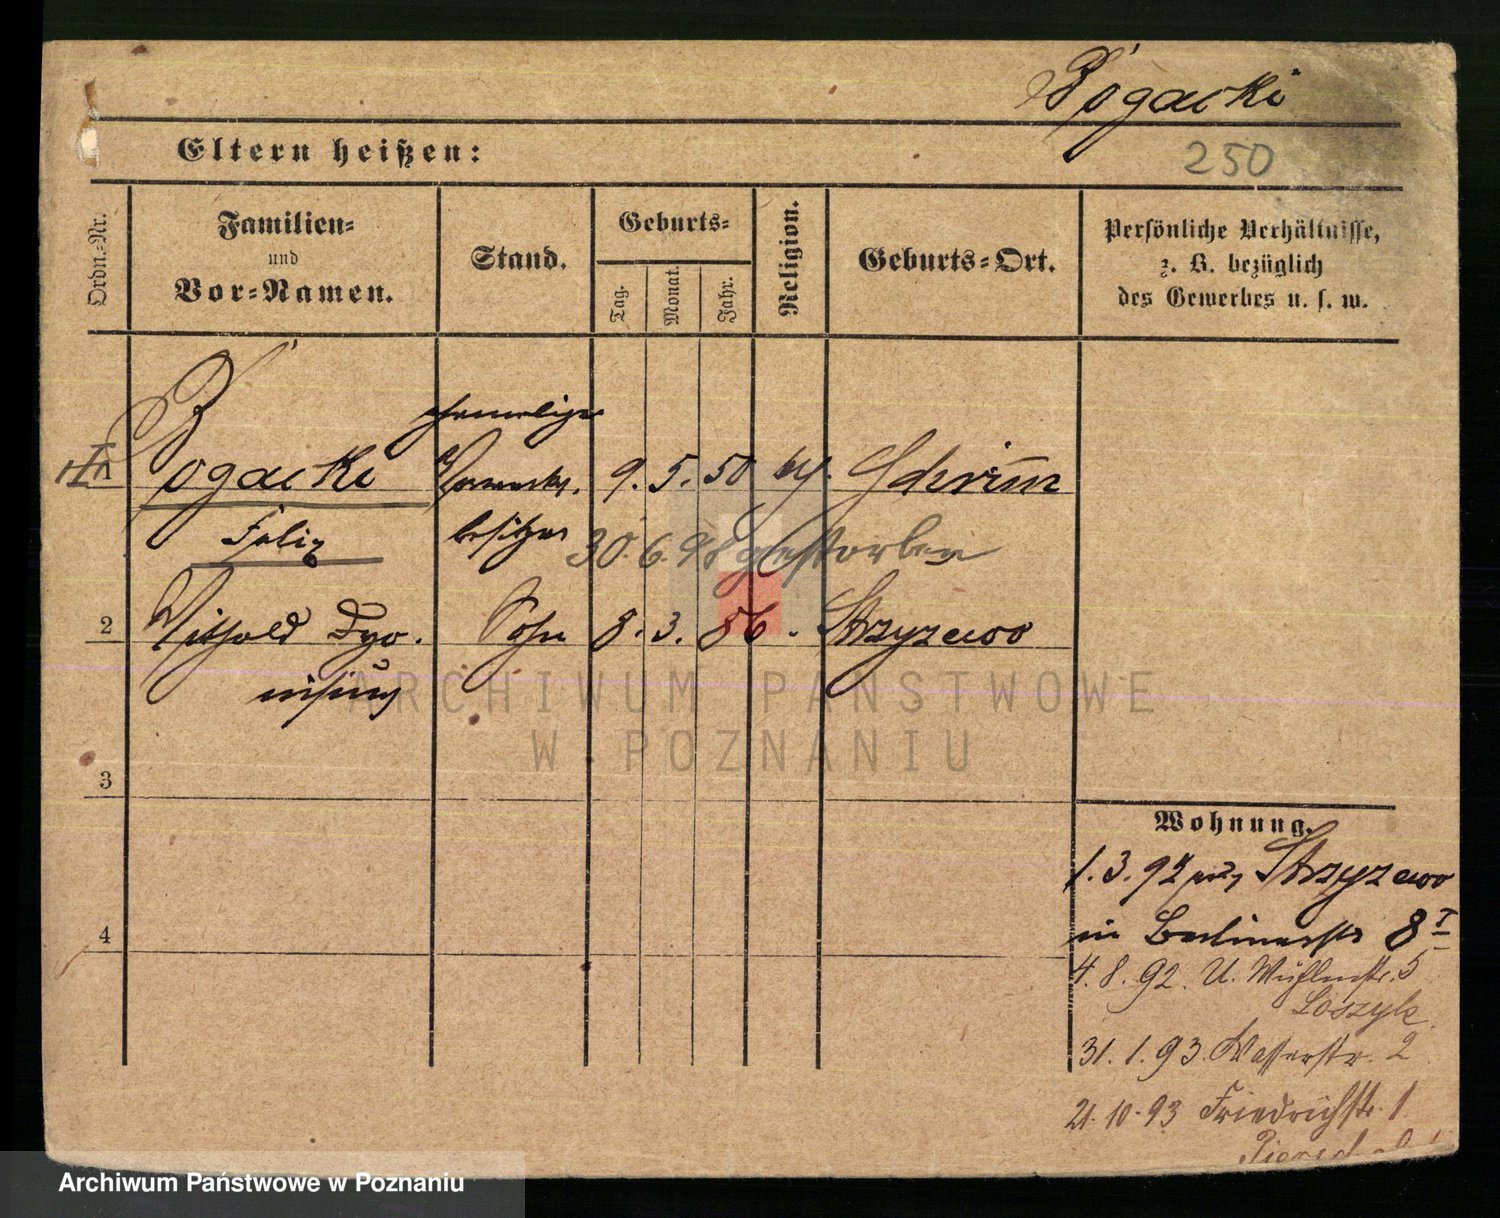 Pógacki
Eltern heißen:
250
Ordn.=Nr.
Familien=
und
Vor=Namen.
Stand.
Geburts=
Tag.
Monat.
Jahr.
Religion.
Geburts=Ort.
Persönliche Verhältnisse,
z. B. bezüglich
des Gewerbes u. s. w.
ehemaliger
Pógacki Vorwerks. 9. 5. 50 kath.
Felix besitzer 30. 6. 98 gestorben
2 Withold Dyo. Sohn 8. 3. 86. Strzyzewo
nisius
3
4
Wohnung.
1. 3. 92 aus Strzyzewo
in Berlinerstr 8 I
4. 8. 92. U. Mühlenstr. 5
Loszyk
31. 1. 93. Wasserstr. 2
21. 10. 93 Friedrichstr. 1
ARCHIWUM PAŃSTWOWE
W POZNANIU
Archiwum Państwowe w Poznaniu